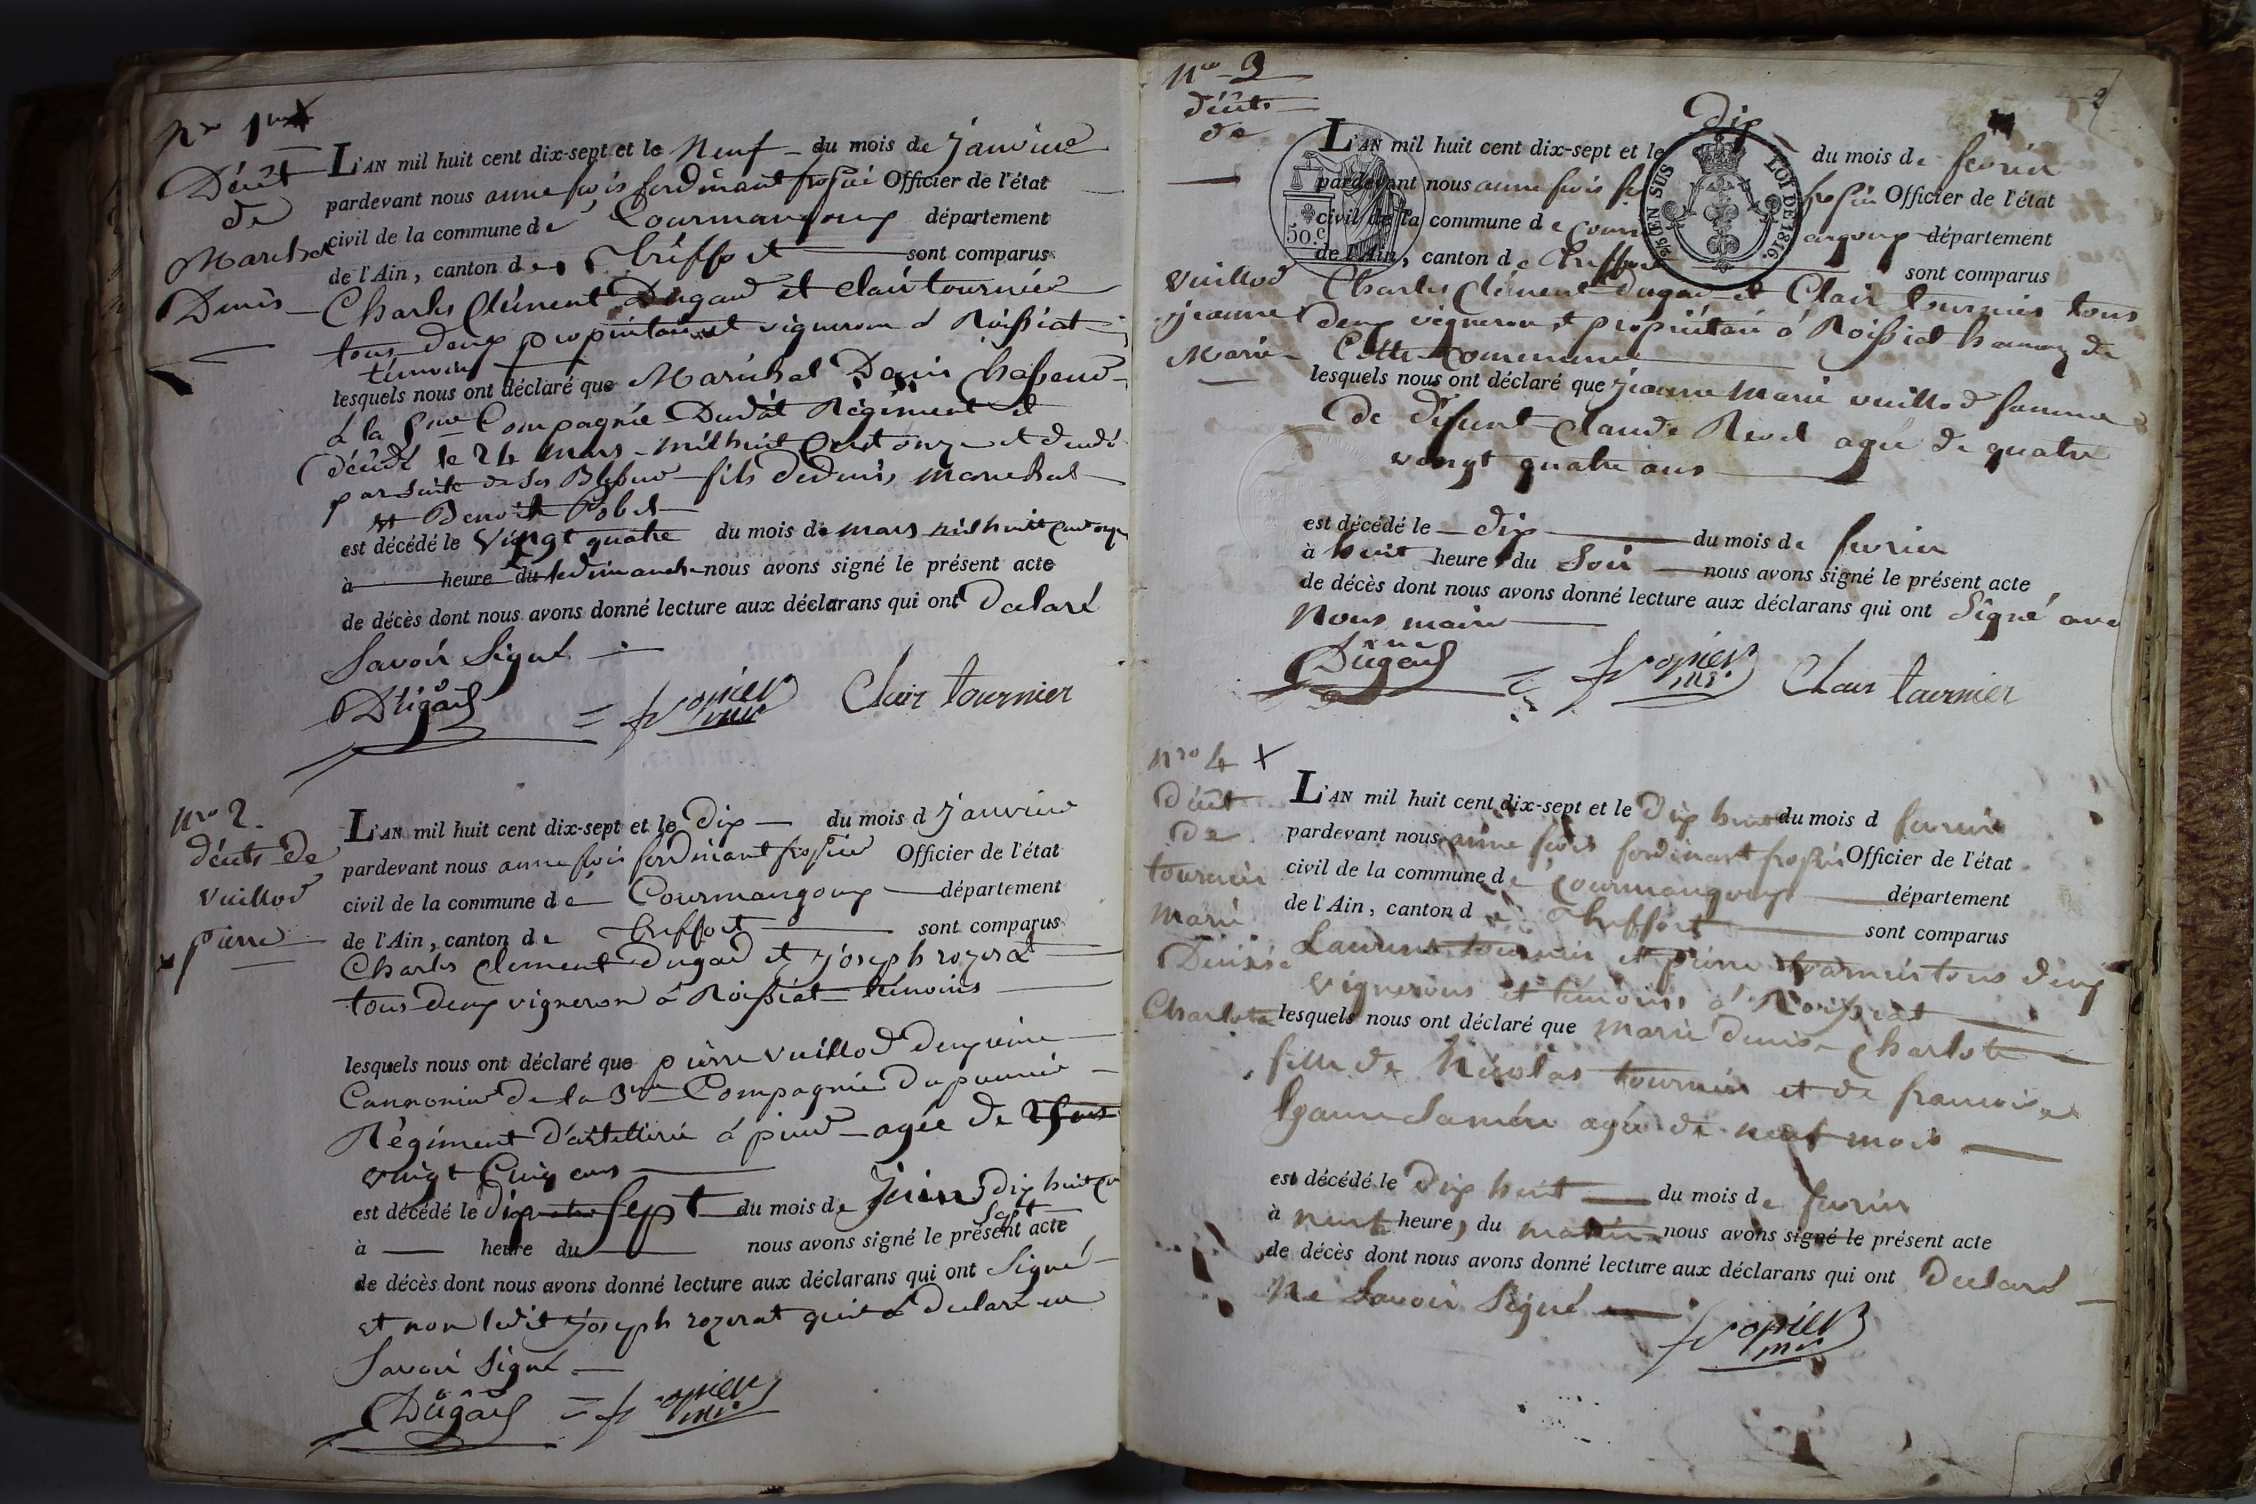 Nro 1er
Décêt
de
Marechal
Denis
L'AN mil huit cent dix-sept et le Neuf du mois de janvier
pardevant nous anne fois ferdinant fropier Officier de l'état
civil de la commune de Courmangoux département
de l'Ain, canton de treffort sont comparus
Charles Clément Dugad et clair tournier
tous deux propriétaire et vigneron à Roissiat
témoins
lesquels nous ont déclaré que Maréchal Denis Chasseur
à la Compagnie Dudit Régiment et
décédé le 24 mars mil huit Cent onze et
par suite de ses Blessur fils de denis marechal
et Benoite Pobel
est décédé le Vingt quatre du mois de mars mil huit cent onze
à heure du nous avons signé le présent acte
de décès dont nous avons donné lecture aux déclarans qui ont Declaré
Savoir Signé
Dugad fropier mre Clair tournier
Nro 2
décêts de
Vuillod
pierre
L'AN mil huit cent dix-sept et le Dix du mois d janvier
pardevant nous anne fois ferdinant fropier Officier de l'état
civil de la commune de Courmangoux département
de l'Ain, canton de treffort sont comparus
Charles Clement dugad et joseph rozerat
tous deux vigneron à Roissiat témoins
lesquels nous ont déclaré que pierre vuillod deuxième
Cannonier de la 3me Compagnie du premier
Régiment d'artellirie à pied agée de
vingt Cinq ans
est décédé le dix sept du mois de Juin dix huit
sept
à heure du nous avons signé le présent acte
de décès dont nous avons donné lecture aux déclarans qui ont Signé
et non ledit joseph rozerat qui a declaré ne
Savoir Signé
Dugad fropier mre
Nro 3
décêts
de
Vuillod
jeanne
Marie
2
L'AN mil huit cent dix-sept et le Dix du mois de fevrier
pardevant nous anne fois fropier Officier de l'état
civil de la commune de Courmangoux département
de l'Ain, canton de treffort sont comparus
50 c.
25 C. EN SUS
LOI DE 1816.
Charles Clement dugad et Clair tournier tous
deux vigneron et propriétaire à Roissiat hamaux de
Cette Commune
lesquels nous ont déclaré que jeanne Marie vuillod famme
de défunt Claude Revel agée de quatre
vingt quatre ans
est décédé le dix du mois de fevrier
à huit heures du Soir nous avons signé le présent acte
de décès dont nous avons donné lecture aux déclarans qui ont Signé avec
Nous maire
Dugad fropier mre Clair tournier
Nro 4
Décêt
de
tournier
marie
Denise
Charlote
L'AN mil huit cent dix-sept et le Dix huit du mois d fevrier
pardevant nous anne fois ferdinant fropier Officier de l'état
civil de la commune de Courmangoux département
de l'Ain, canton d e treffort sont comparus
Laurent tournier et pierre tournier tous deux
vignerons et témoins à Roissiat
lesquels nous ont déclaré que marie denise Charlote
fille de Nicolas tournier et de francoise
sa mère agée de neuf mois
est décédé le Dix huit du mois de fevrier
à neuf heures du matin nous avons signé le présent acte
de décès dont nous avons donné lecture aux déclarans qui ont Declaré
Ne Savoir Signé
fropier mre